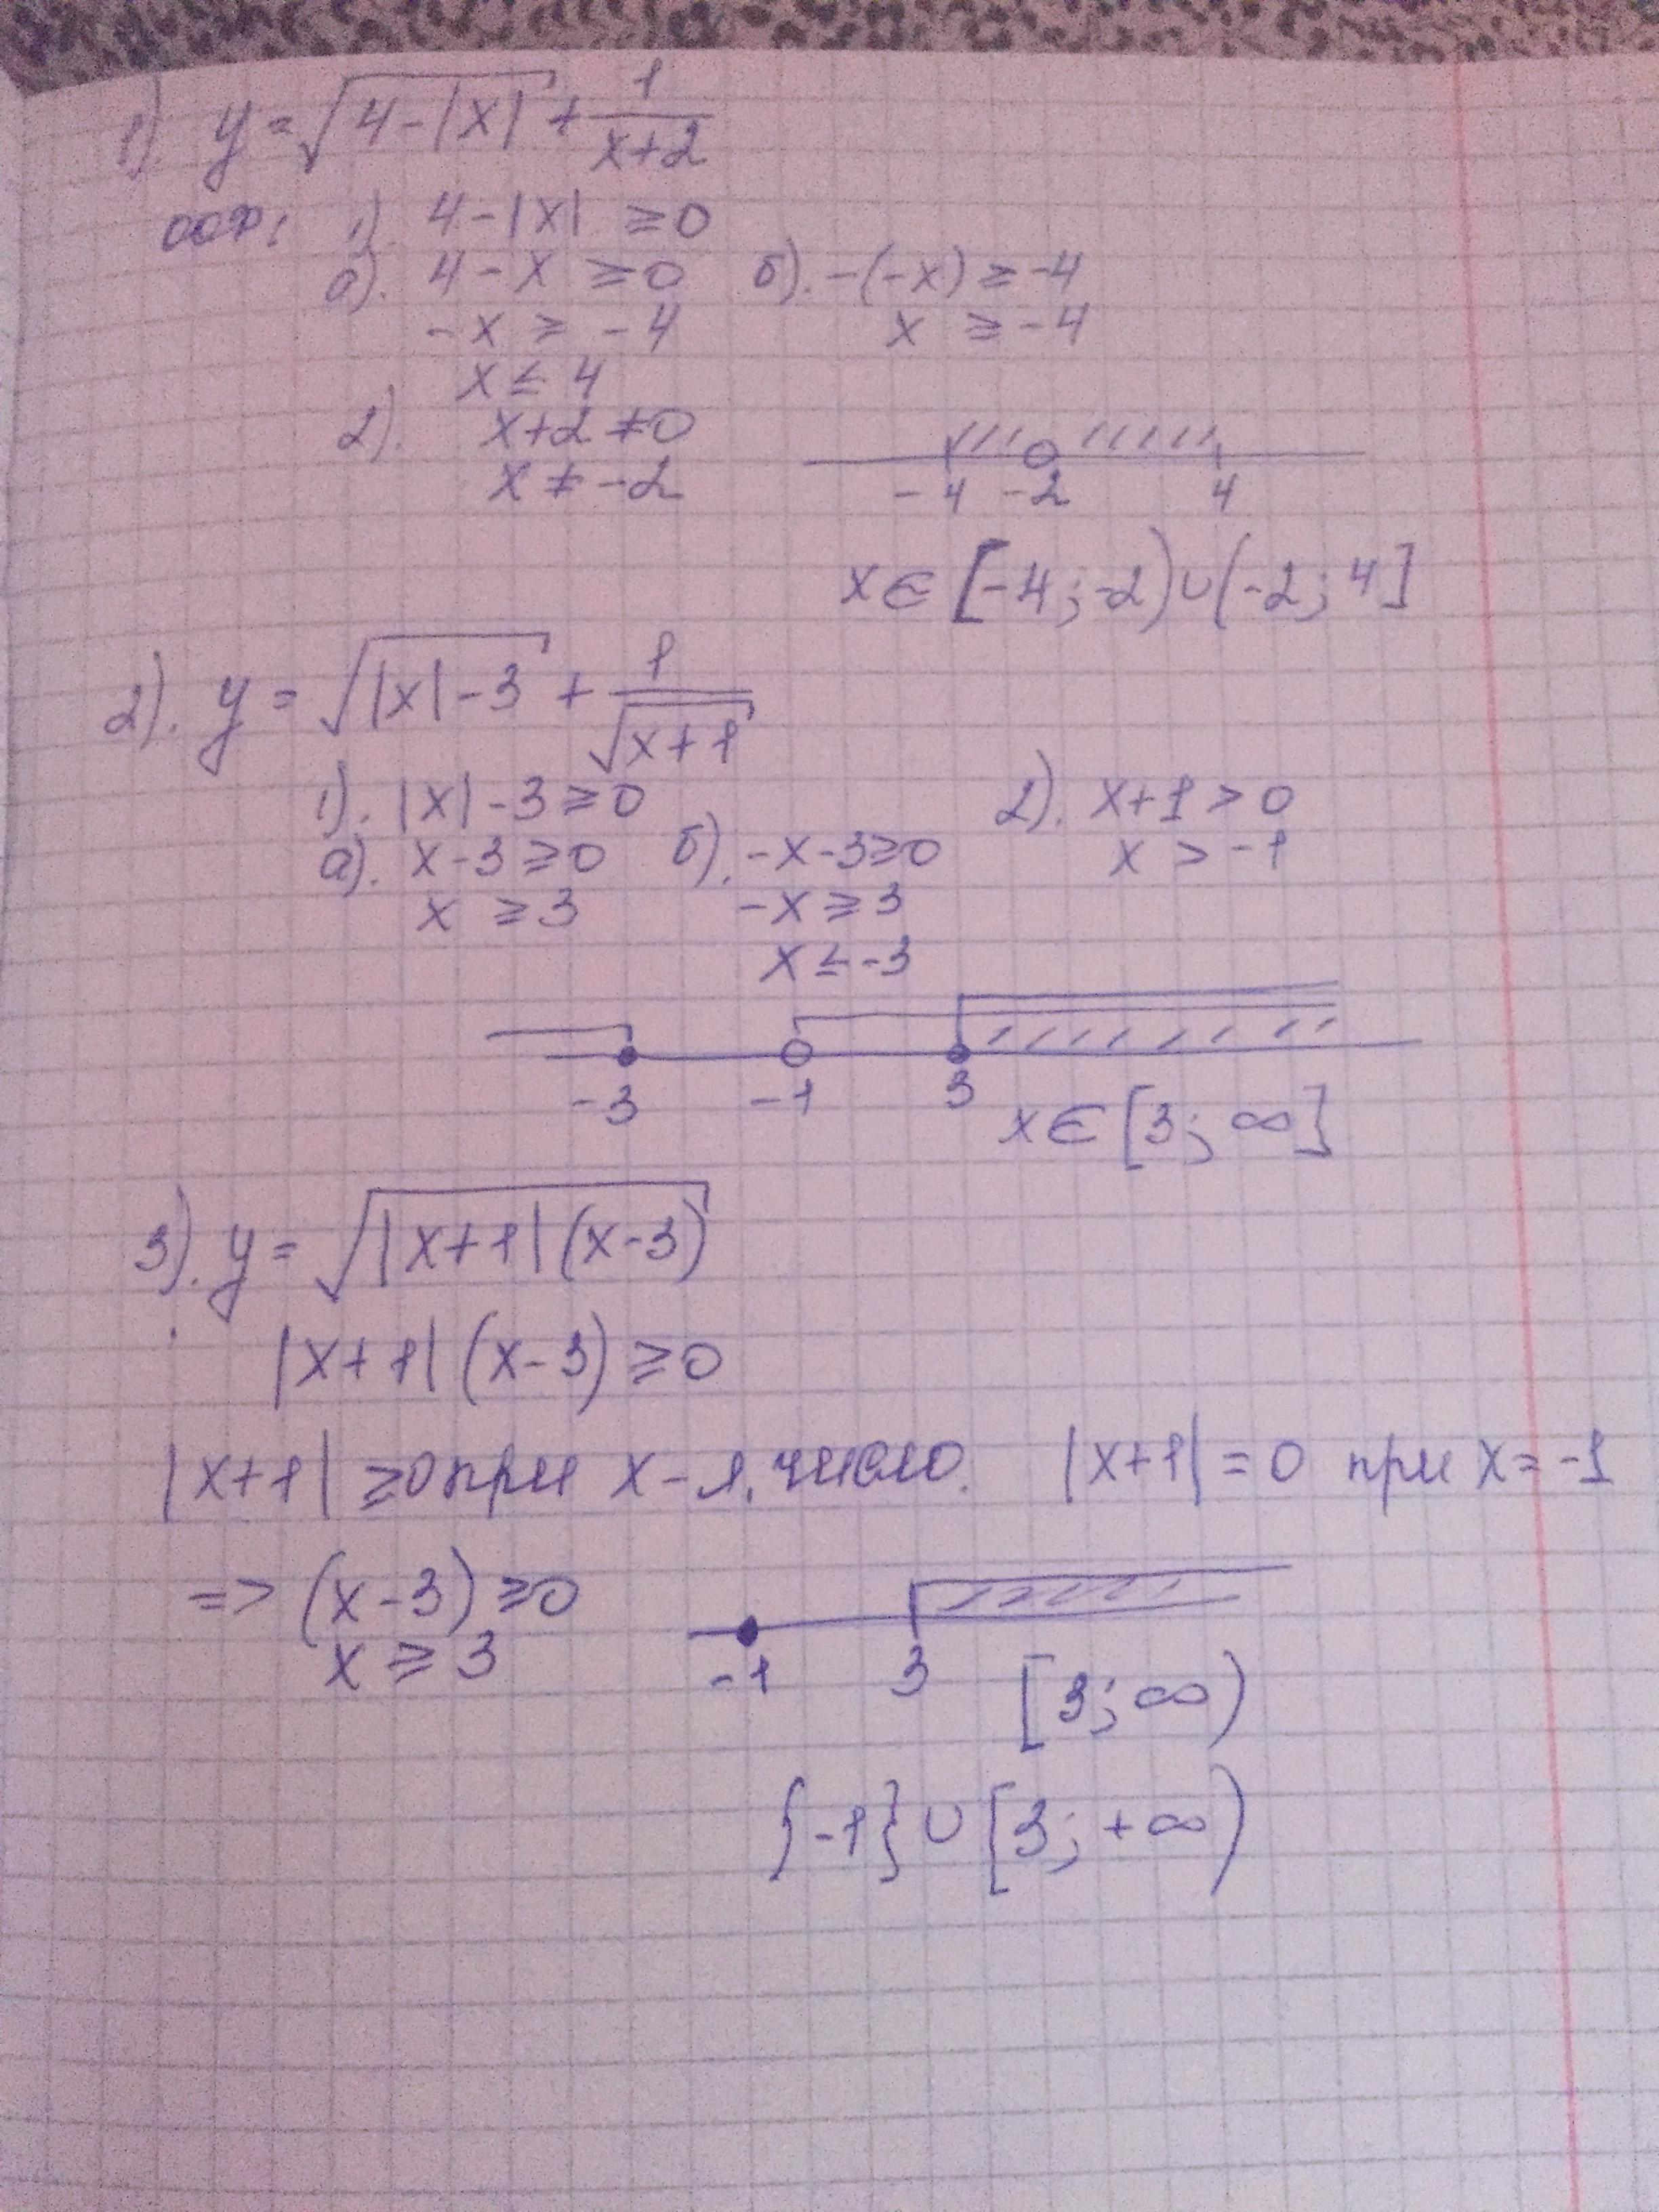 1). y = √(4-|x|) + 1/(x+2)
ООФ: 1). 4-|x| ≥ 0
а). 4-x ≥ 0 б). -(-x) ≥ -4
-x ≥ -4 x ≥ -4
x ≤ 4
2). x+2 ≠ 0
x ≠ -2
-4 -2 4
x ∈ [-4; -2) ∪ (-2; 4]
2). y = √(|x|-3) + 1/√(x+1)
1). |x|-3 ≥ 0 2). x+1 > 0
а). x-3 ≥ 0 б). -x-3 ≥ 0 x > -1
x ≥ 3 -x ≥ 3
x ≤ -3
-3 -1 3
x ∈ [3; ∞]
3). y = √(|x+1|(x-3))
|x+1|(x-3) ≥ 0
|x+1| ≥ 0 при x - л. число. |x+1| = 0 при x = -1
=> (x-3) ≥ 0
x ≥ 3
-1 3
[3; ∞)
{-1} ∪ [3; +∞)